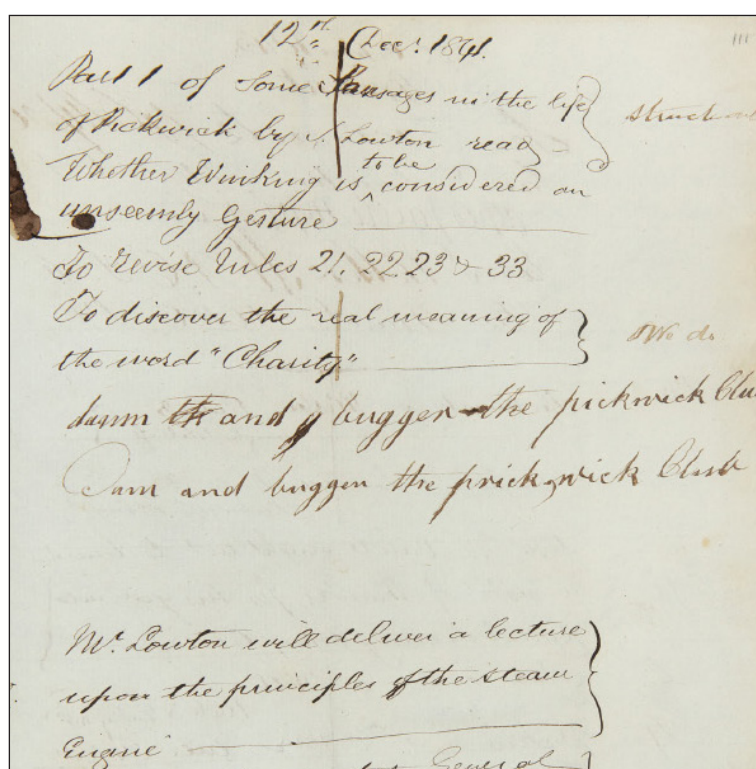 12th Decr. 1841.
111
Part 1 of some Passages in the life
struck out
of Pickwick by Lowton read
Whether Winking is to be considered an
unseemly Gesture
To revise Rules 21. 22 23 & 33
To discover the real meaning of
We do
the word "Charity"
damn th and bugger the pickwick Club
Dam and bugger the prickwick Club
Mr. Lowton will deliver a lecture
upon the principles of the steam
Engine
General